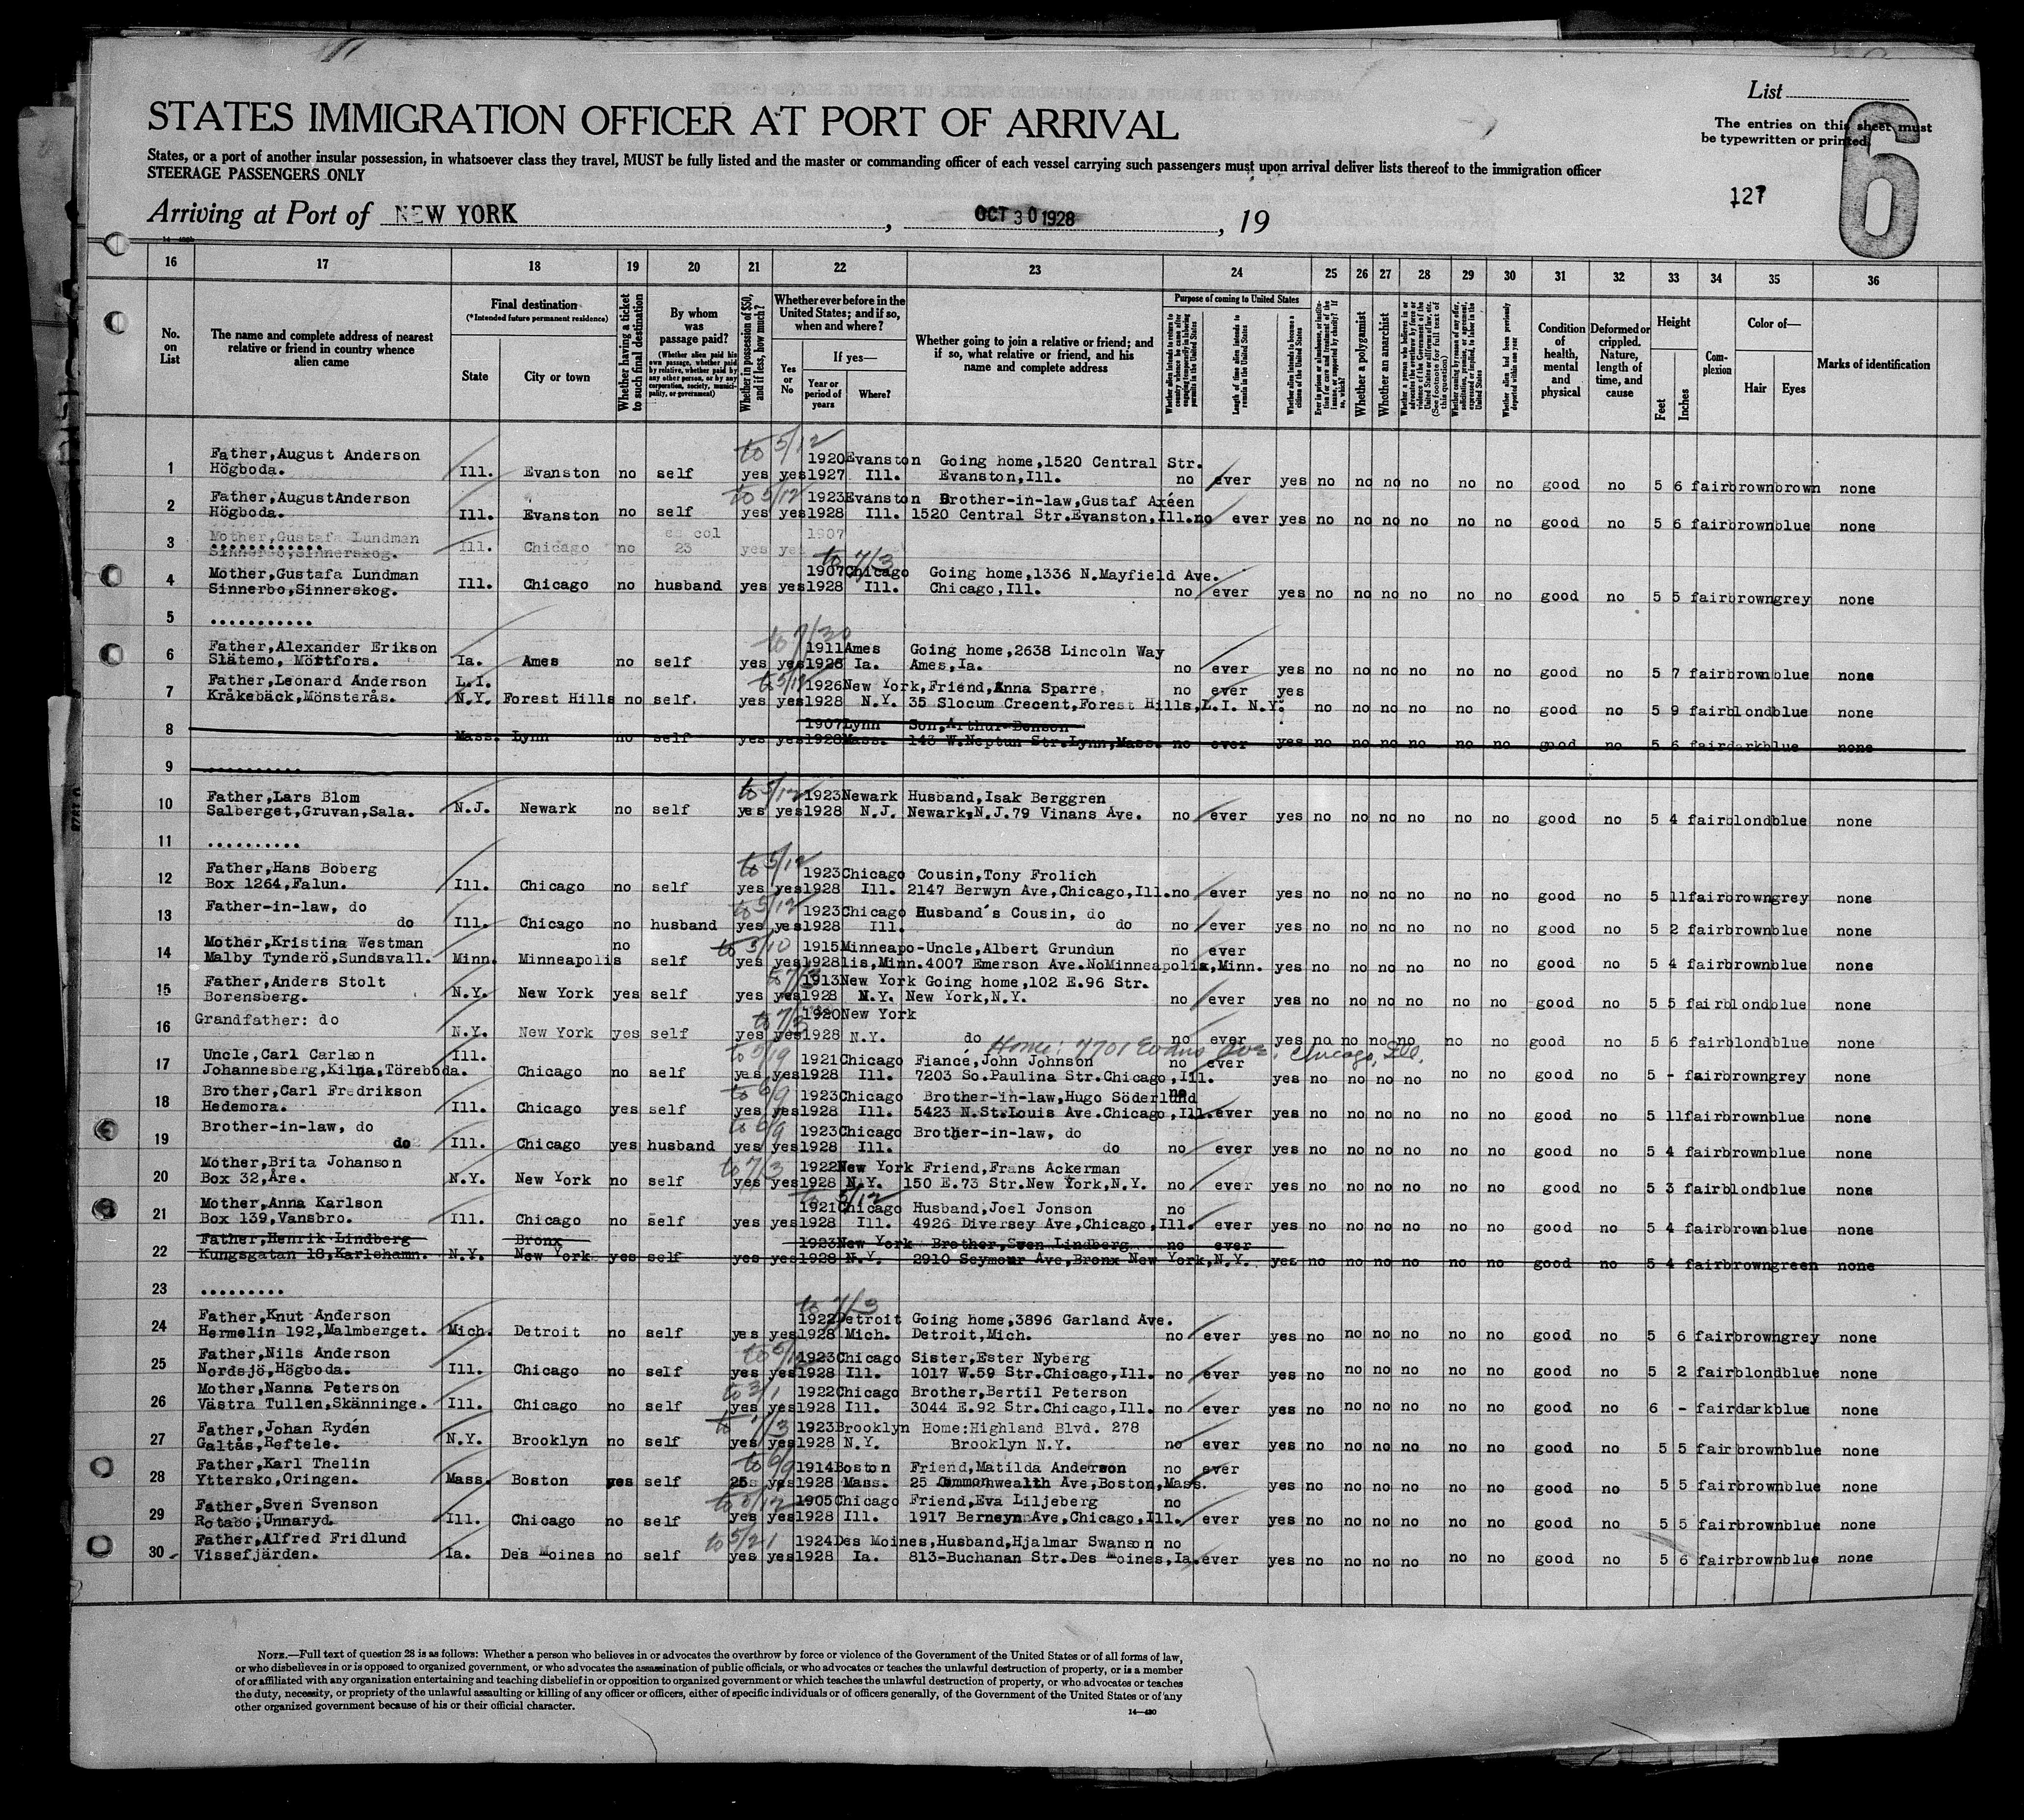 List
STATES IMMIGRATION OFFICER AT PORT OF ARRIVAL
The entries on this sheet must
be typewritten or printed.
6
States, or a port of another insular possession, in whatsoever class they travel, MUST be fully listed and the master or commanding officer of each vessel carrying such passengers must upon arrival deliver lists thereof to the immigration officer
STEERAGE PASSENGERS ONLY
127
Arriving at Port of NEW YORK, OCT 30 1928, 19
16 17 18 19 20 21 22 23 24 25 26 27 28 29 30 31 32 33 34 35 36
No. on List
The name and complete address of nearest relative or friend in country whence alien came
Final destination
(*Intended future permanent residence)
State
City or town
Whether having a ticket to such final destination
By whom was passage paid?
(Whether alien paid his own passage, whether paid by relative, whether paid by any other person, or by any corporation, society, municipality, or government)
Whether in possession of $50, and if less, how much?
Whether ever before in the United States; and if so, when and where?
Yes or No
If yes—
Year or period of years
Where?
Whether going to join a relative or friend; and if so, what relative or friend, and his name and complete address
Purpose of coming to United States
Length of time alien intends to remain in the United States
Whether alien intends to become a citizen of the United States
Whether a polygamist
Whether an anarchist
(See footnote for full text of this question)
Whether alien had been previously deported within one year
Condition of health, mental and physical
Deformed or crippled. Nature, length of time, and cause
Height
Feet
Inches
Complexion
Color of—
Hair
Eyes
Marks of identification
1 Father, August Anderson Högboda. Ill. Evanston no self to 5/12 yes yes 1920 1927 Evanston Ill. Going home, 1520 Central Str. Evanston, Ill. no ever yes no no no no no no good no 5 6 fair brown brown none
2 Father, August Anderson Högboda. Ill. Evanston no self to 5/12 yes yes 1923 1928 Evanston Ill. Brother-in-law, Gustaf Axéen 1520 Central Str. Evanston, Ill. no ever yes no no no no no no good no 5 6 fair brown blue none
3 Mother, Gustafa Lundman Sinnerbo, Sinnerskog. Ill. Chicago no col 23 yes yes 1907
4 Mother, Gustafa Lundman Sinnerbo, Sinnerskog. Ill. Chicago no husband yes yes to 7/3 1907 1928 Chicago Ill. Going home, 1336 N. Mayfield Ave. Chicago, Ill. no ever yes no no no no no no good no 5 5 fair brown grey none
5 ...........
6 Father, Alexander Erikson Slätemo, Mörtfors. Ia. Ames no self to 7/30 yes yes 1911 1928 Ames Ia. Going home, 2638 Lincoln Way Ames, Ia. no ever yes no no no no no no good no 5 7 fair brown blue none
7 Father, Leonard Anderson Kråkebäck, Mönsterås. L.I. N.Y. Forest Hills no self. to 5/12 yes yes 1926 1928 New York, N.Y. Friend, Anna Sparre 35 Slocum Crecent, Forest Hills, L.I. N.Y. no ever yes no no no no no no good no 5 9 fair blond blue none
8 Mass. Lynn no self yes yes 1907 1928 Lynn Mass. Son, Arthur Benson 143 W. Neptun Str. Lynn, Mass. no ever yes no no no no no no good no 5 6 fair dark blue none
9 ..........
10 Father, Lars Blom Salberget, Gruvan, Sala. N.J. Newark no self to 5/12 yes yes 1923 1928 Newark N.J. Husband, Isak Berggren Newark, N.J. 79 Vinans Ave. no ever yes no no no no no no good no 5 4 fair blond blue none
11 ..........
12 Father, Hans Boberg Box 1264, Falun. Ill. Chicago no self to 5/12 yes yes 1923 1928 Chicago Ill. Cousin, Tony Frolich 2147 Berwyn Ave, Chicago, Ill. no ever yes no no no no no no good no 5 11 fair brown grey none
13 Father-in-law, do do Ill. Chicago no husband to 5/12 yes yes 1923 1928 Chicago Ill. Husband's Cousin, do do no ever yes no no no no no no good no 5 2 fair brown blue none
14 Mother, Kristina Westman Malby Tynderö, Sundsvall. Minn. Minneapolis no self to 3/10 yes yes 1915 1928 Minneapo-lis, Minn. Uncle, Albert Grundun 4007 Emerson Ave. No Minneapolis, Minn. no ever yes no no no no no no good no 5 4 fair brown blue none
15 Father, Anders Stolt Borensberg. N.Y. New York yes self to 7/3 yes yes 1913 1928 New York N.Y. Going home, 102 E. 96 Str. New York, N.Y. no ever yes no no no no no no good no 5 5 fair blond blue none
16 Grandfather: do N.Y. New York yes self to 7/3 yes yes 1920 1928 New York N.Y. do no ever yes no no no no no no good no 5 6 fair blond blue none
Home: 7701 Evans Ave. Chicago, Ill.
17 Uncle, Carl Carlson Johannesberg, Kilna, Töreboda. Ill. Chicago no self to 5/19 yes yes 1921 1928 Chicago Ill. Fiancé, John Johnson 7203 So. Paulina Str. Chicago, Ill. no ever yes no no no no no no good no 5 - fair brown grey none
18 Brother, Carl Fredrikson Hedemora. Ill. Chicago yes self to 6/9 yes yes 1923 1928 Chicago Ill. Brother-in-law, Hugo Söderlund 5423 N. St. Louis Ave. Chicago, Ill. no ever yes no no no no no no good no 5 11 fair brown blue none
19 Brother-in-law, do do Ill. Chicago yes husband to 6/9 yes yes 1923 1928 Chicago Ill. Brother-in-law, do do no ever yes no no no no no no good no 5 4 fair brown blue none
20 Mother, Brita Johanson Box 32, Åre. N.Y. New York no self to 7/3 yes yes 1922 1928 New York N.Y. Friend, Frans Ackerman 150 E. 73 Str. New York, N.Y. no ever yes no no no no no no good no 5 3 fair blond blue none
21 Mother, Anna Karlson Box 139, Vansbro. Ill. Chicago no self yes yes to 5/12 1921 1928 Chicago Ill. Husband, Joel Jonson 4926 Diversey Ave, Chicago, Ill. no ever yes no no no no no no good no 5 4 fair brown blue none
22 Father, Henrik Lindberg Kungsgatan 18, Karlshamn. N.Y. Bronx New York yes self yes yes 1923 1928 New York N.Y. Brother, Sven Lindberg 2910 Seymour Ave, Bronx New York, N.Y. no ever yes no no no no no no good no 5 4 fair brown green none
23 .........
24 Father, Knut Anderson Hermelin 192, Malmberget. Mich. Detroit no self yes yes to 7/3 1922 1928 Detroit Mich. Going home, 3896 Garland Ave. Detroit, Mich. no ever yes no no no no no no good no 5 6 fair brown grey none
25 Father, Nils Anderson Nordsjö, Högboda. Ill. Chicago no self to 5/12 yes yes 1923 1928 Chicago Ill. Sister, Ester Nyberg 1017 W. 59 Str. Chicago, Ill. no ever yes no no no no no no good no 5 2 fair blond blue none
26 Mother, Nanna Peterson Västra Tullen, Skänninge. Ill. Chicago no self to 3/1 yes yes 1922 1928 Chicago Ill. Brother, Bertil Peterson 3044 E. 92 Str. Chicago, Ill. no ever yes no no no no no no good no 6 - fair dark blue none
27 Father, Johan Rydén Galtås, Reftele. N.Y. Brooklyn no self to 7/3 yes yes 1923 1928 Brooklyn N.Y. Home: Highland Blvd. 278 Brooklyn N.Y. no ever yes no no no no no no good no 5 5 fair brown blue none
28 Father, Karl Thelin Yttersko, Oringen. Mass. Boston yes self to 6/9 25 yes 1914 1928 Boston Mass. Friend, Matilda Anderson 25 Commonwealth Ave, Boston, Mass. no ever yes no no no no no no good no 5 5 fair brown blue none
29 Father, Sven Svenson Rotabo, Unnaryd. Ill. Chicago no self to 5/12 yes yes 1905 1928 Chicago Ill. Friend, Eva Liljeberg 1917 Berneyn Ave, Chicago, Ill. no ever yes no no no no no no good no 5 5 fair brown blue none
30 Father, Alfred Fridlund Vissefjärden. Ia. Des Moines no self to 5/21 yes yes 1924 1928 Des Moines, Ia. Husband, Hjalmar Swanson 813-Buchanan Str. Des Moines, Ia. no ever yes no no no no no no good no 5 6 fair brown blue none
NOTE.—Full text of question 28 is as follows: Whether a person who believes in or advocates the overthrow by force or violence of the Government of the United States or of all forms of law,
or who disbelieves in or is opposed to organized government, or who advocates the assassination of public officials, or who advocates or teaches the unlawful destruction of property, or is a member
of or affiliated with any organization entertaining and teaching disbelief in or opposition to organized government or which teaches the unlawful destruction of property, or who advocates or teaches
the duty, necessity, or propriety of the unlawful assaulting or killing of any officer or officers, either of specific individuals or of officers generally, of the Government of the United States or of any
other organized government because of his or their official character.
14—430